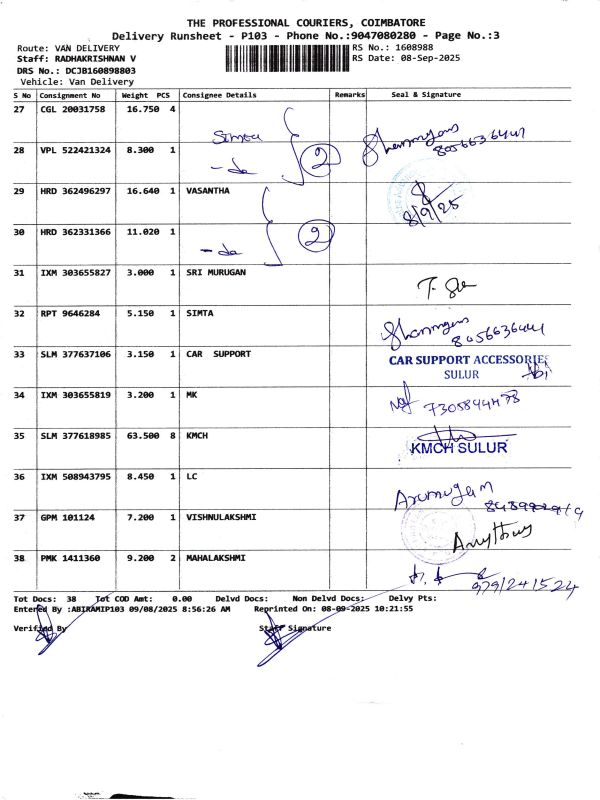 THE PROFESSIONAL COURIERS, COIMBATORE
Delivery Runsheet - P103 - Phone No.:9047080280 - Page No.:3
Route: VAN DELIVERY RS No.: 1608988
Staff: RADHAKRISHNAN V RS Date: 08-Sep-2025
DRS No.: DCJB160898803
Vehicle: Van Delivery
S No Consignment No Weight PCS Consignee Details Remarks Seal & Signature
27 CGL 20031758 16.750 4 Simta
28 VPL 522421324 8.300 1 - do 2 Shanmugam 8056636441
29 HRD 362496297 16.640 1 VASANTHA 8/9/25
30 HRD 362331366 11.020 1 - do 2
31 IXM 303655827 3.000 1 SRI MURUGAN
32 RPT 9646284 5.150 1 SIMTA Shanmugam 8056636441
33 SLM 377637106 3.150 1 CAR SUPPORT CAR SUPPORT ACCESSORIES
SULUR
34 IXM 303655819 3.200 1 MK 7305844478
35 SLM 377618985 63.500 8 KMCH KMCH SULUR
36 IXM 508943795 8.450 1 LC Arumugam
37 GPM 101124 7.200 1 VISHNULAKSHMI
38 PMK 1411360 9.200 2 MAHALAKSHMI 9791241524
Tot Docs: 38 Tot COD Amt: 0.00 Delvd Docs: Non Delvd Docs: Delvy Pts:
Entered By :ABIRAMIP103 09/08/2025 8:56:26 AM Reprinted On: 08-09-2025 10:21:55
Verified By Staff Signature